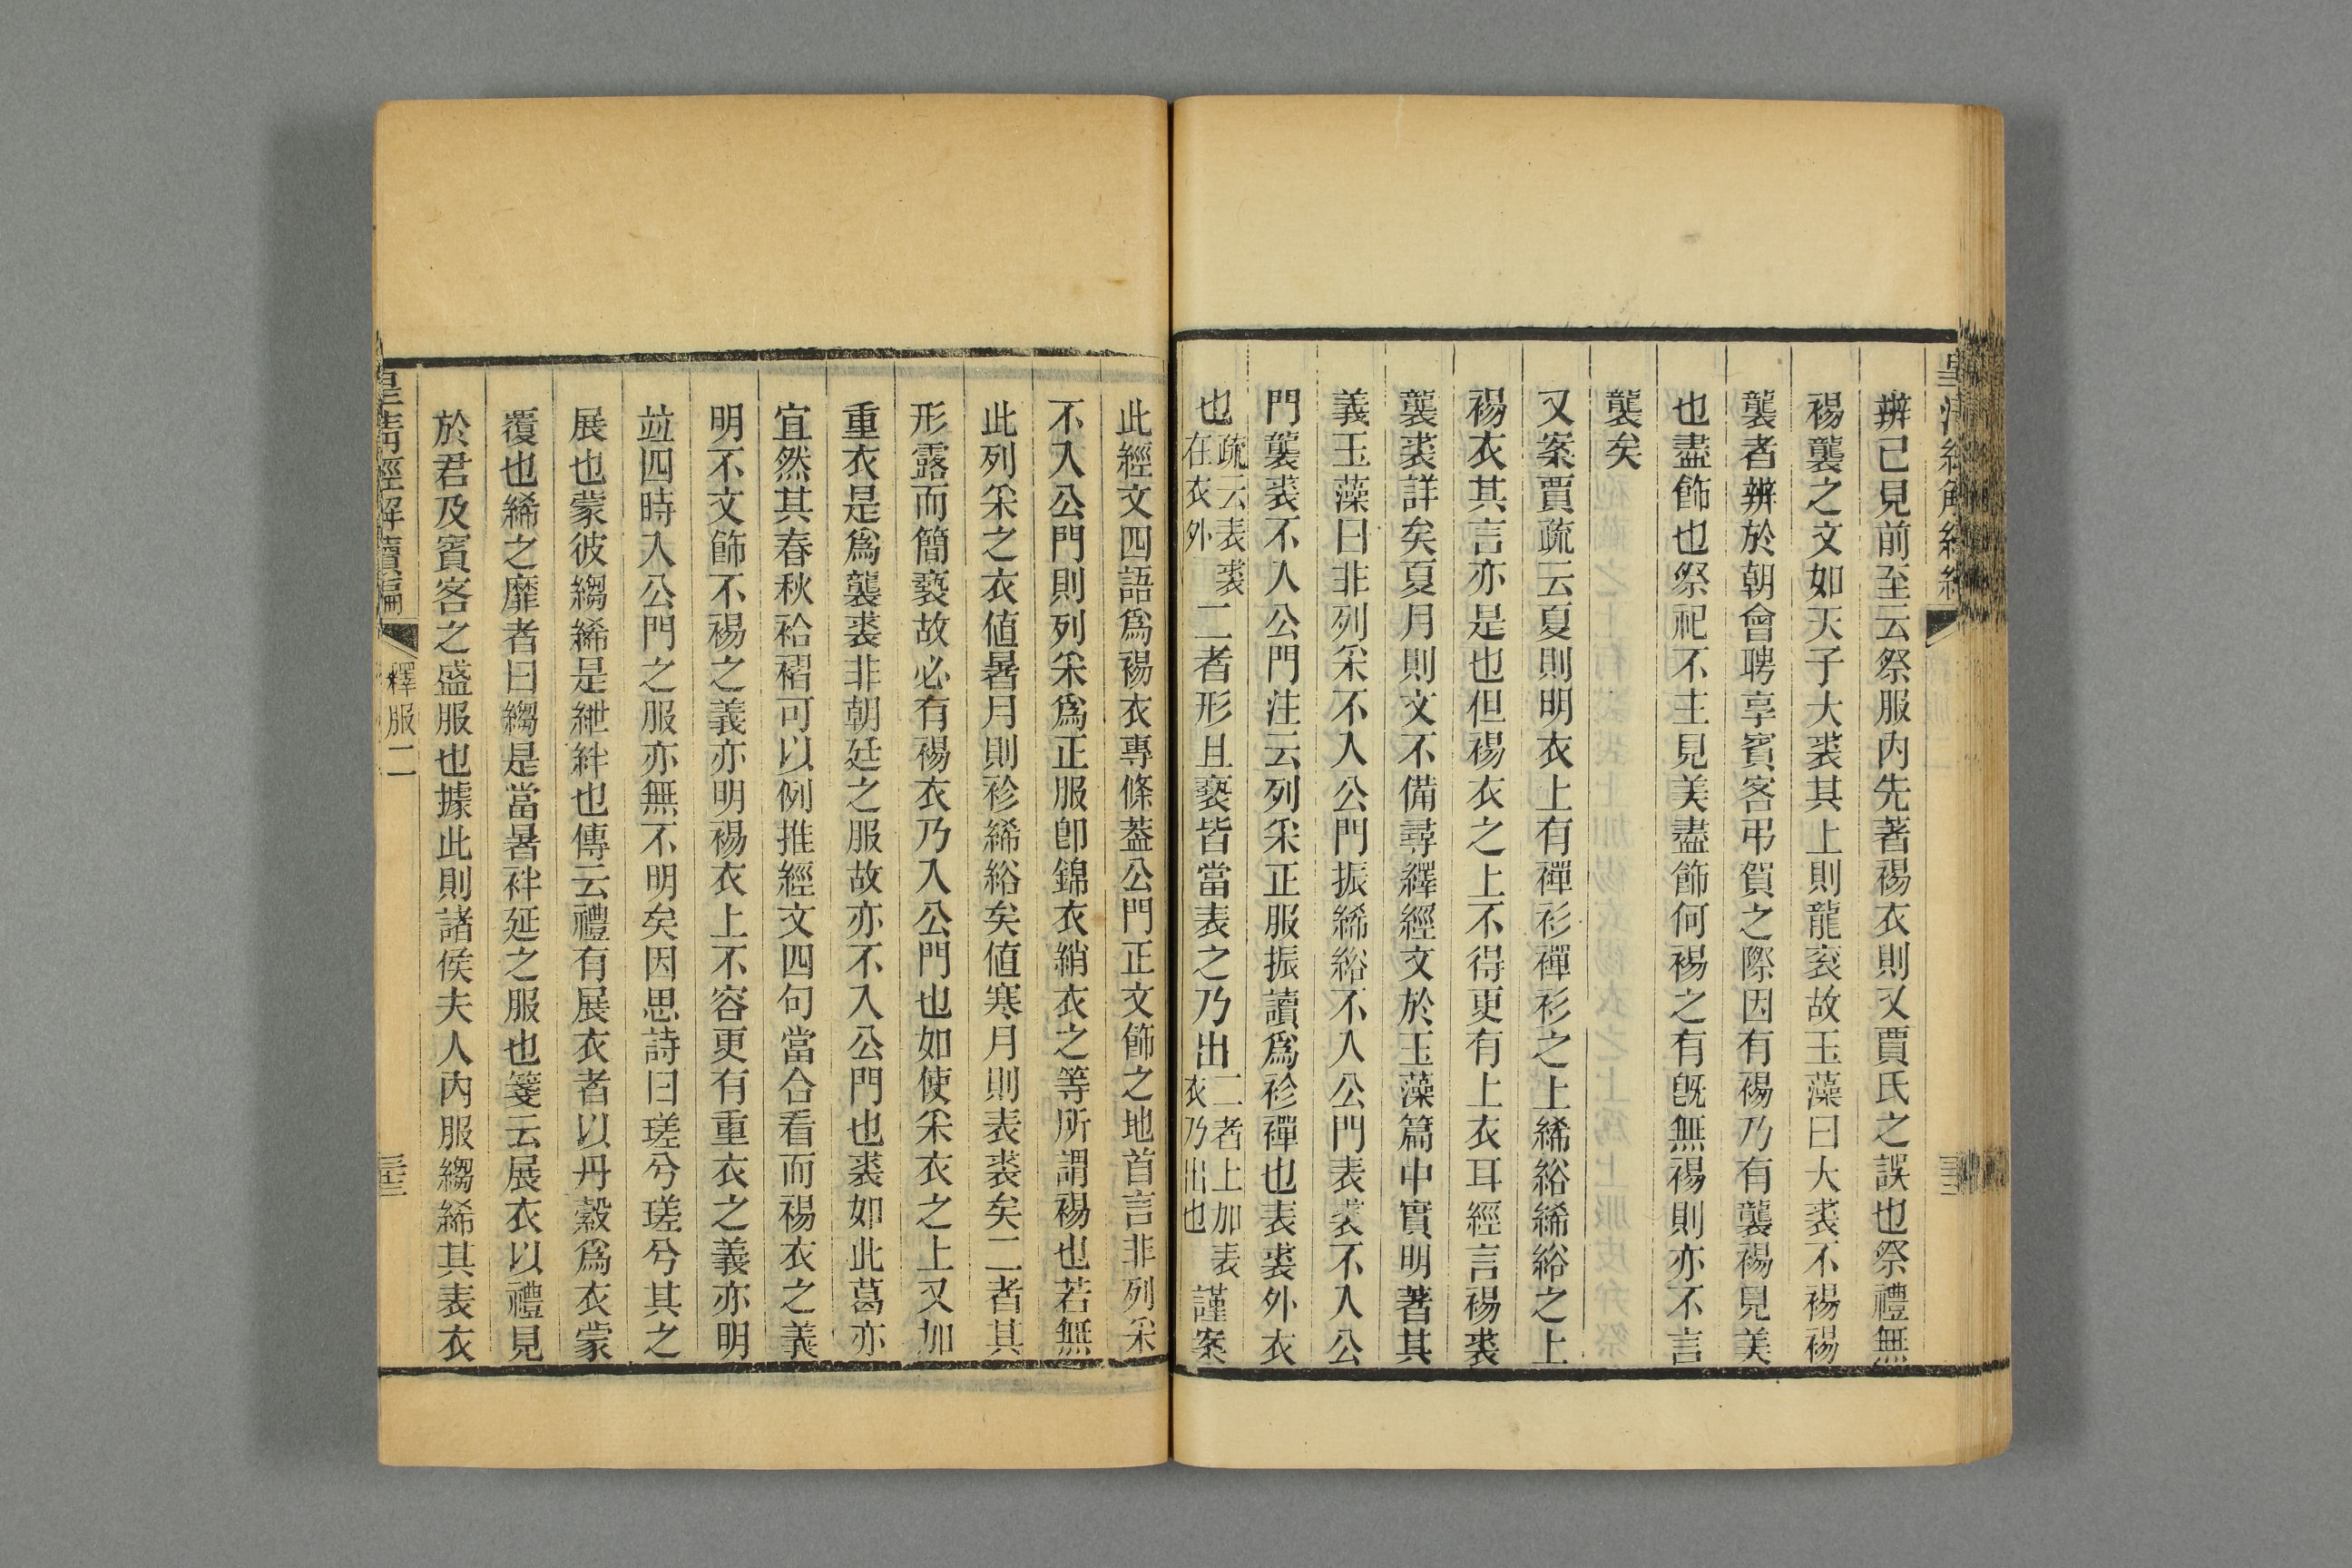 辨已見前至云祭服內先著裼衣則又賈氏之誤也祭禮無
裼襲之文如天子大裘其上則龍衮故玉藻曰大裘不裼裼
襲者辨於朝會聘享賓客弔賀之際因有裼乃有襲裼見美
也盡飾也祭祀不主見美盡飾何裼之有旣無裼則亦不言
襲矣
又案賈疏云夏則明衣上有襌衫襌衫之上絺綌絺綌之上
裼衣其言亦是也但裼衣之上不得更有上衣耳經言裼裘
襲裘詳矣夏月則文不備尋繹經文於玉藻篇中實明著其
義玉藻曰非列采不入公門振絺綌不入公門表裘不入公
門襲裘不入公門注云列采正服振讀爲袗襌也表裘外衣
也疏云表裘在衣外二者形且褻皆當表之乃出二者上加表衣乃出也謹案
此經文四語爲裼衣專條葢公門正文飾之地首言非列采
不入公門則列采爲正服卽錦衣綃衣之等所謂裼也若無
此列采之衣值暑月則袗絺綌矣值寒月則表裘矣二者其
形露而簡褻故必有裼衣乃入公門也如使采衣之上又加
重衣是爲襲裘非朝廷之服故亦不入公門也裘如此葛亦
宜然其春秋袷褶可以例推經文四句當合看而裼衣之義
明不文飾不裼之義亦明裼衣上不容更有重衣之義亦明
竝四時入公門之服亦無不明矣因思詩曰瑳兮瑳兮其之
展也蒙彼縐絺是紲絆也傳云禮有展衣者以丹縠爲衣蒙
覆也絺之靡者曰縐是當暑袢延之服也箋云展衣以禮見
於君及賓客之盛服也據此則諸侯夫人內服縐絺其表衣
皇清經解續編
釋服二